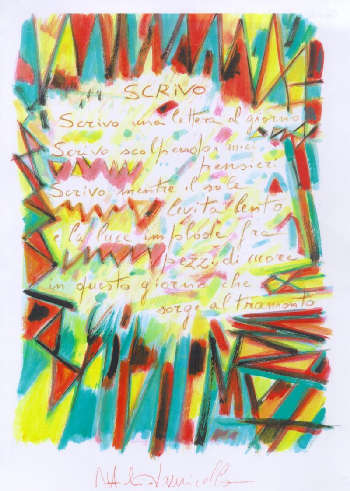 SCRIVO
Scrivo una lettera al giorno
Scrivo scolpendo i miei
pensieri
Scrivo mentre il sole
levita lento
e la luce implode fra
pezzi di cuore
in questo giorno che
sorge al tramonto